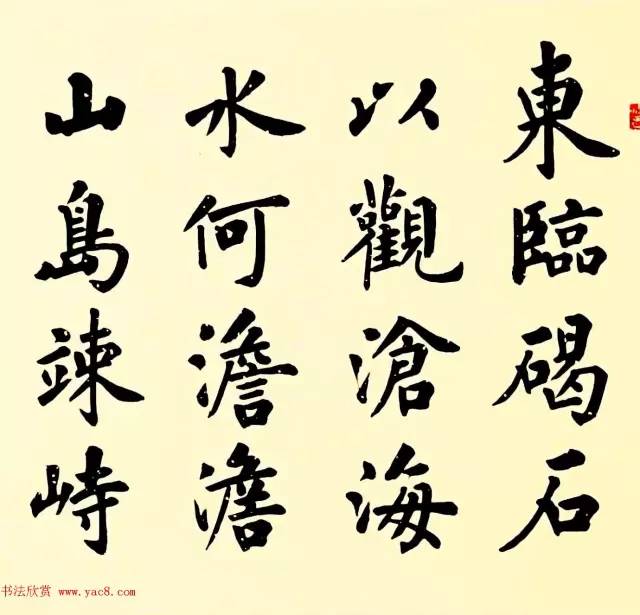 東臨碣石
以觀滄海
水何澹澹
山島竦峙
书法欣赏 www.yac8.com